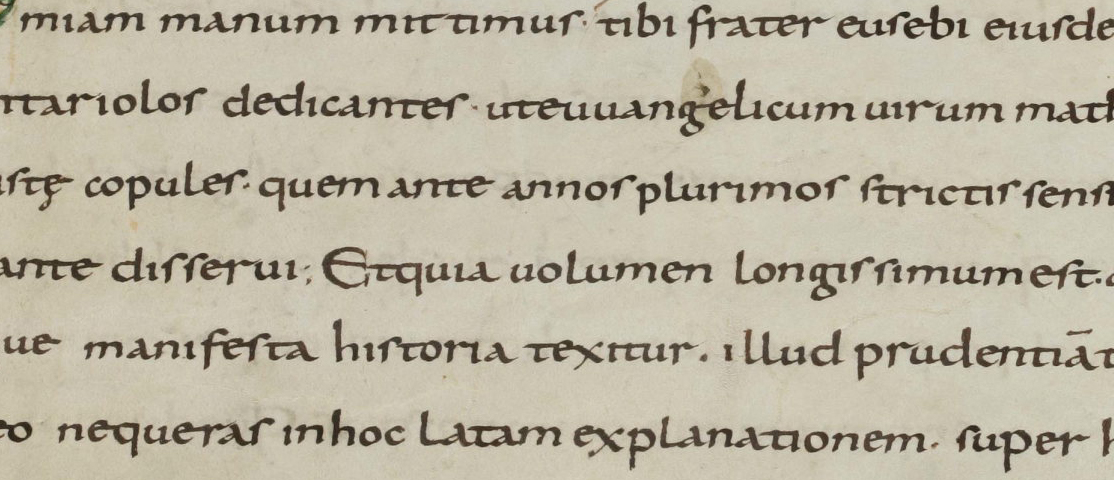 miam manum mittimus· tibi frater eusebi eiusde
ntariolos dedicantes· uteuuangelicum uirum math
istę copules· quem ante annos plurimos strictis sensi
ante disserui; Et quia uolumen longissimum est·
ue manifesta historia texitur. illud prudentiā
eo nequeras inhoc latam explanationem· super h